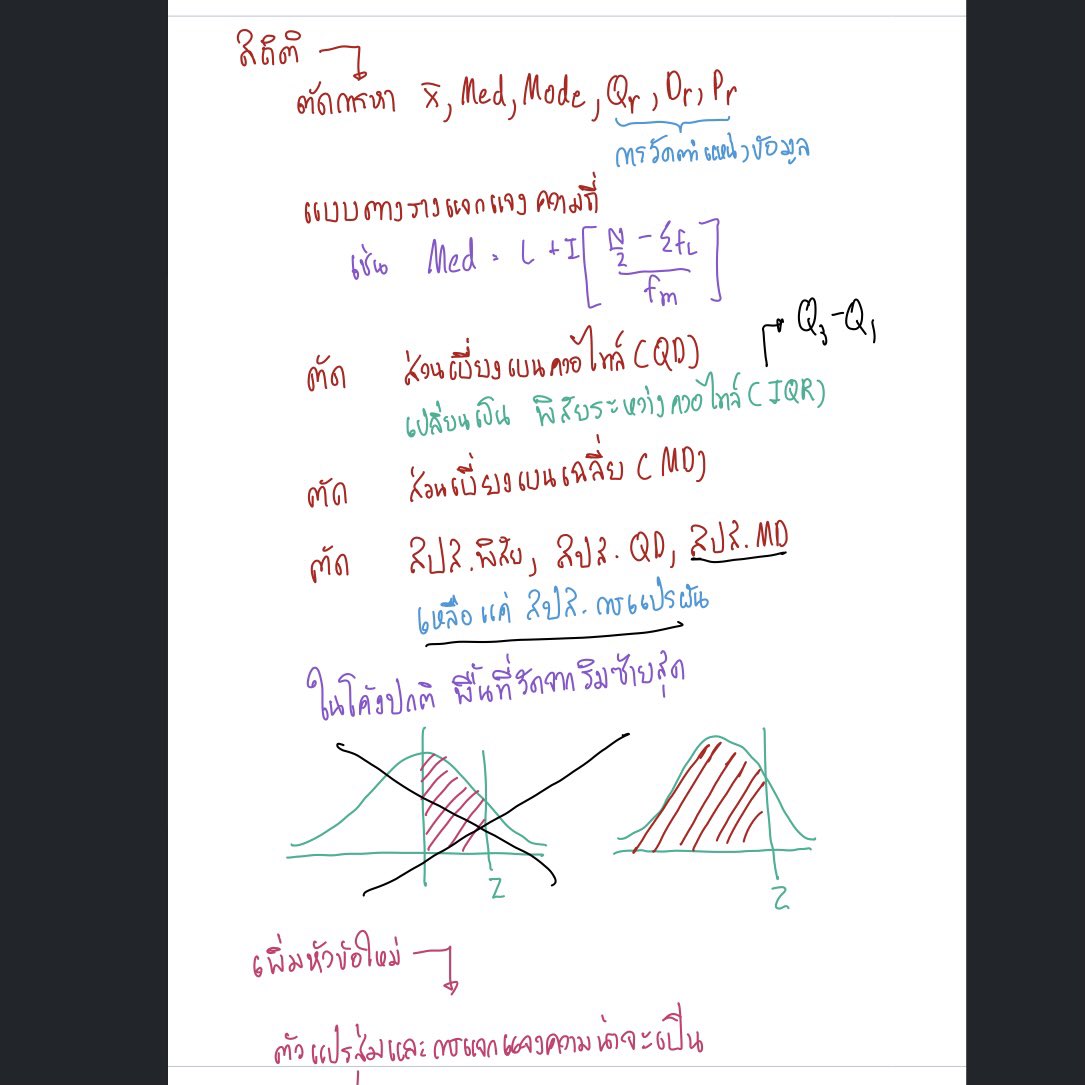 สถิติ
ตัดการหา x̄, Med, Mode, Qr, Dr, Pr
การวัดตำแหน่งข้อมูล
แบบตารางแจกแจงความถี่
เช่น Med = L + I [ (N/2 - Σf_L) / f_m ]
Q₃ - Q₁
ตัด ส่วนเบี่ยงเบนควอไทล์ (QD)
เปลี่ยนเป็น พิสัยระหว่างควอไทล์ (IQR)
ตัด ส่วนเบี่ยงเบนเฉลี่ย (MD)
ตัด สปส.พิสัย, สปส. QD, สปส. MD
เหลือแค่ สปส. การแปรผัน
ในโค้งปกติ พื้นที่วัดจากริมซ้ายสุด
Z
Z
เพิ่มหัวข้อใหม่
ตัวแปรสุ่มและการแจกแจงความน่าจะเป็น